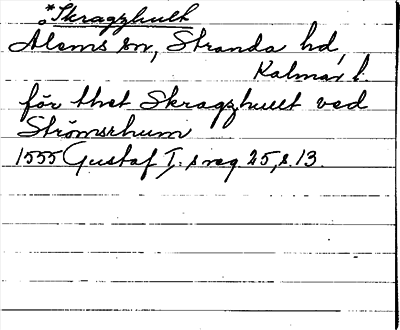 *Skragzhult
Ålems sn, Stranda hd,
Kalmar l.
för thet Skragzhullt ved
Strömsrhum
1555 Gustaf I:s reg 25, s. 13.